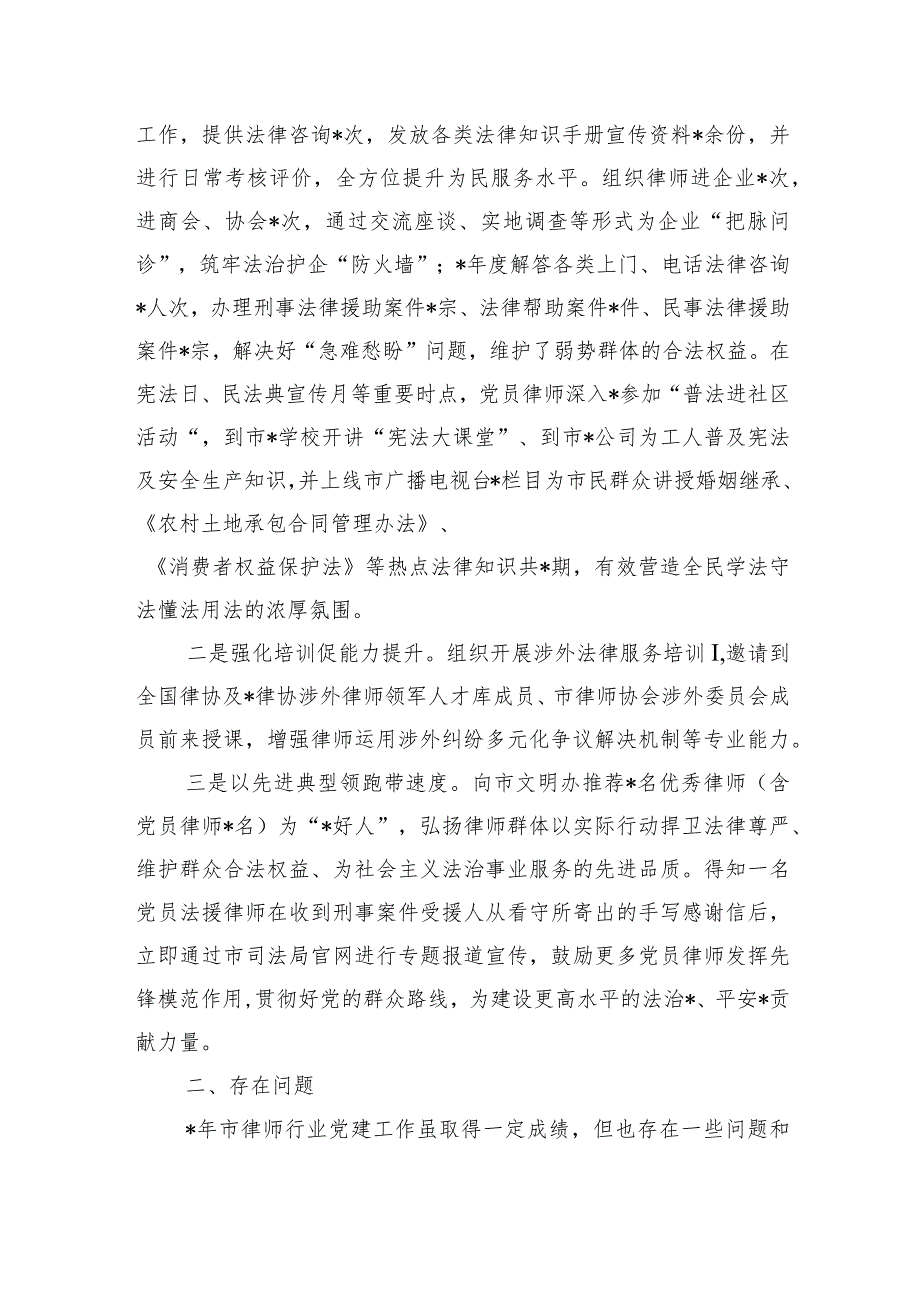 工作，提供法律咨询*次，发放各类法律知识手册宣传资料*余份，并
进行日常考核评价，全方位提升为民服务水平。组织律师进企业*次，
进商会、协会*次，通过交流座谈、实地调查等形式为企业“把脉问
诊”，筑牢法治护企“防火墙”；*年度解答各类上门、电话法律咨询
*人次，办理刑事法律援助案件*宗、法律帮助案件*件、民事法律援助
案件*宗，解决好“急难愁盼”问题，维护了弱势群体的合法权益。在
宪法日、民法典宣传月等重要时点，党员律师深入*参加“普法进社区
活动“，到市*学校开讲“宪法大课堂”、到市*公司为工人普及宪法
及安全生产知识,并上线市广播电视台*栏目为市民群众讲授婚姻继承、
《农村土地承包合同管理办法》、
《消费者权益保护法》等热点法律知识共*期，有效营造全民学法守
法懂法用法的浓厚氛围。
二是强化培训促能力提升。组织开展涉外法律服务培训I,邀请到
全国律协及*律协涉外律师领军人才库成员、市律师协会涉外委员会成
员前来授课，增强律师运用涉外纠纷多元化争议解决机制等专业能力。
三是以先进典型领跑带速度。向市文明办推荐*名优秀律师（含
党员律师*名）为“*好人”，弘扬律师群体以实际行动捍卫法律尊严、
维护群众合法权益、为社会主义法治事业服务的先进品质。得知一名
党员法援律师在收到刑事案件受援人从看守所寄出的手写感谢信后，
立即通过市司法局官网进行专题报道宣传，鼓励更多党员律师发挥先
锋模范作用,贯彻好党的群众路线，为建设更高水平的法治*、平安*贡
献力量。
二、存在问题
*年市律师行业党建工作虽取得一定成绩，但也存在一些问题和